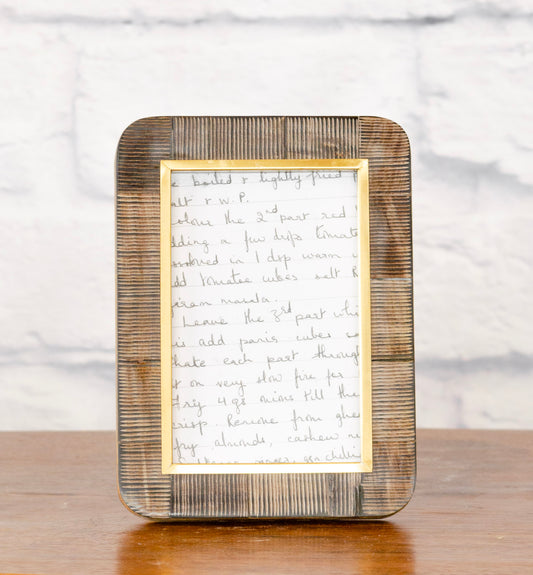 e boiled & lightly fried
alt & W.P.
olour the 2nd part red
dding a few drops tomato
ssolved in 1 dsp warm
dd tomatoe cubes salt
garam masala.
Leave the 3rd part whi
is add panir cubes
hate each part through
t on very slow fire for
Frig 4 gs onions till the
crisp. Remove from ghee
fry almonds, cashew